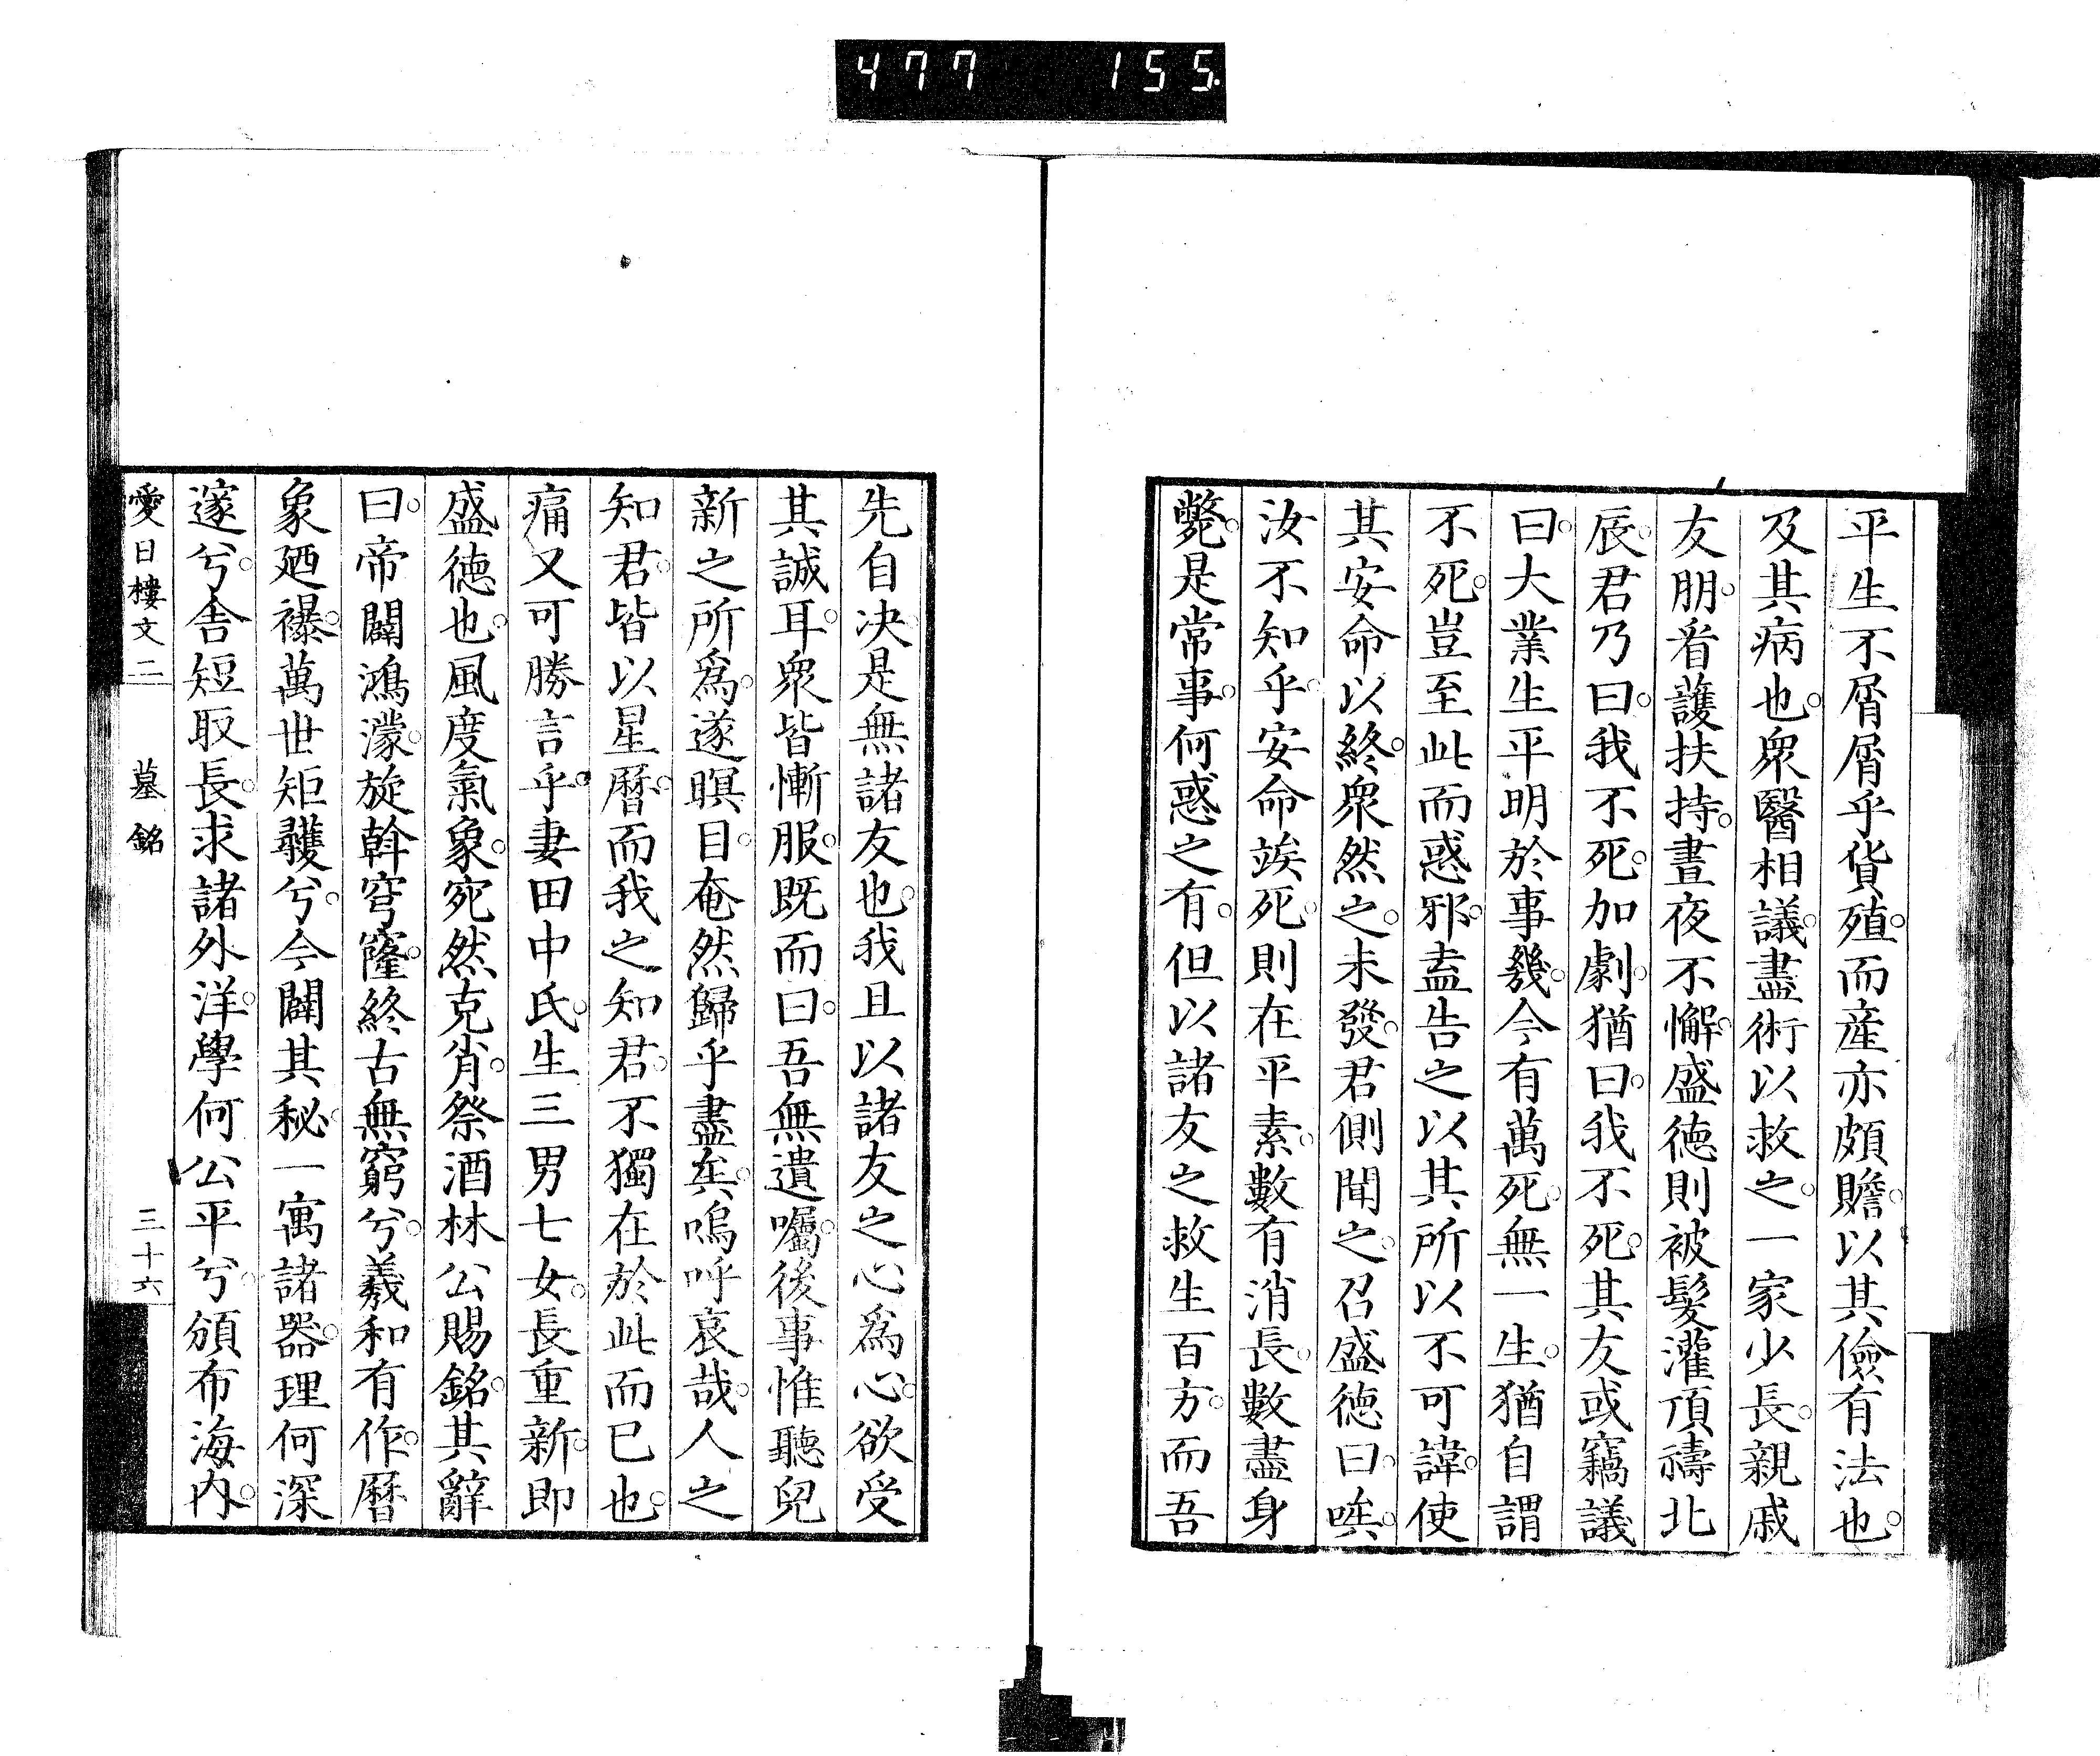 477 155.
平生不屑屑乎貨殖。而産亦頗贍。以其儉有法也。
及其病也。衆醫相議。盡術以救之。一家少長。親戚
友朋。看護扶持。晝夜不懈。盛徳則被髮灌頂禱北
辰。君乃曰。我不死。加劇。猶曰。我不死。其友或竊議
曰。大業生平明於事幾。今有萬死。無一生。猶自謂
不死。豈至此而惑邪。盍告之以其所以不可諱。使
其安命以終。衆然之。未發。君側聞之。召盛徳曰。哄。
汝不知乎。安命竢死。則在平素。數有消長。數盡身
斃。是常事。何惑之有。但以諸友之救生百方。而吾
先自决。是無諸友也。我且以諸友之心爲心。欲受
其誠耳。衆皆慚服。既而曰。吾無遺囑。後事惟聽兒
新之所爲。遂瞑目。奄然歸乎盡矣。嗚呼哀哉。人之
知君。皆以星曆。而我之知君。不獨在於此而已也。
痛又可勝言乎。妻田中氏。生三男七女。長重新。即
盛徳也。風度氣象。宛然克肖。祭酒林公賜銘。其辭
曰。帝闢鴻濛。旋斡穹窿。終古無窮兮。羲和有作。曆
象廼襮。萬世矩矱兮。今闢其秘。一寓諸器。理何深
邃兮。舍短取長。求諸外洋。學何公平兮。頒布海内。
愛日樓文二 墓銘 三十六